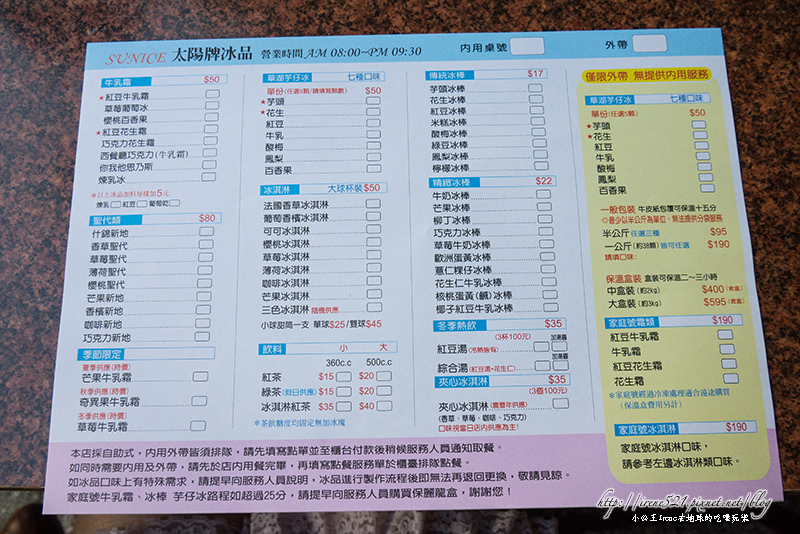 SUNICE 太陽牌冰品 營業時間 AM 08:00~PM 09:30 內用桌號 外帶
牛乳霜 $50
★紅豆牛乳霜
草莓葡萄冰
櫻桃百香果
★紅豆花生霜
巧克力花生霜
西餐廳巧克力(牛乳霜)
你我他思乃斯
煉乳冰
＊以上冰品加料每樣加5元
煉乳 紅豆 葡萄乾
聖代類 $80
什錦新地
香草聖代
草莓聖代
薄荷聖代
櫻桃聖代
芒果新地
香檳新地
咖啡新地
巧克力新地
季節限定
夏季供應(時價)
芒果牛乳霜
秋季供應(時價)
奇異果牛乳霜
冬季供應(時價)
草莓牛乳霜
草湖芋仔冰 七種口味
單份(任選5顆/請填寫顆數) $50
★芋頭
★花生
紅豆
牛乳
酸梅
鳳梨
百香果
冰淇淋 大球杯裝$50
法國香草冰淇淋
葡萄香檳冰淇淋
可可冰淇淋
櫻桃冰淇淋
草莓冰淇淋
薄荷冰淇淋
咖啡冰淇淋
芒果冰淇淋
三色冰淇淋 隨機供應
小球甜筒一支 單球$25/雙球$45
飲料 小 大
360c.c 500c.c
紅茶 $15 $20
綠茶(假日供應) $15 $20
冰淇淋紅茶 $35 $40
＊茶飲糖度均固定無加冰塊
傳統冰棒 $17
芋頭冰棒
花生冰棒
紅豆冰棒
米糕冰棒
酸梅冰棒
綠豆冰棒
鳳梨冰棒
檸檬冰棒
精緻冰棒 $22
牛奶冰棒
芒果冰棒
柳丁冰棒
巧克力冰棒
草莓牛奶冰棒
歐洲蛋黃冰棒
薏仁粿仔冰棒
花生仁牛乳冰棒
核桃蛋黃(鹹)冰棒
椰子紅豆牛乳冰棒
冬季熱飲 $35
(3杯100元)
加湯圓
紅豆湯(冷熱皆有)
加湯圓
綜合湯(紅豆湯+花生仁)
夾心冰淇淋 $35
(3個100元)
夾心冰淇淋(農曆年供應)
(香草、草莓、咖啡、巧克力)
口味視當日店內供應為主!
僅限外帶 無提供內用服務
草湖芋仔冰 七種口味
單份(任選5顆) $50
★芋頭
★花生
紅豆
牛乳
酸梅
鳳梨
百香果
一般包裝 牛皮紙包覆可保溫十五分
◎最少以半公斤為單位，無法提供分袋服務
半公斤 任選三種 $95
一公斤(約38顆)皆可任選 $190
請填口味：
保溫盒裝 盒裝可保溫二～三小時
中盒裝(約2kg) $400(含盒)
大盒裝(約3kg) $595(含盒)
家庭號霜類 $190
紅豆牛乳霜
牛乳霜
紅豆花生霜
花生霜
＊家庭號經過冷凍處理適合遠途購買
(保溫盒費用另計)
家庭號冰淇淋 $190
家庭號冰淇淋口味，
請參考左邊冰淇淋類口味。
本店採自助式，內用外帶皆須排隊，請先填寫點單並至櫃台付款後稍候服務人員通知取餐。
如同時需要內用及外帶，請先於店內用餐完畢，再填寫點餐服務單於櫃臺排隊點餐。
如冰品口味上有特殊需求，請提早向服務人員說明，冰品進行製作流程後即無法再退回更換，敬請見諒。
家庭號牛乳霜、冰棒 芋仔冰路程如超過25分，請提早向服務人員購買保麗龍盒，謝謝您！
http://irene521.pixnet.net/blog
小公主Irene在地球的吃喝玩樂